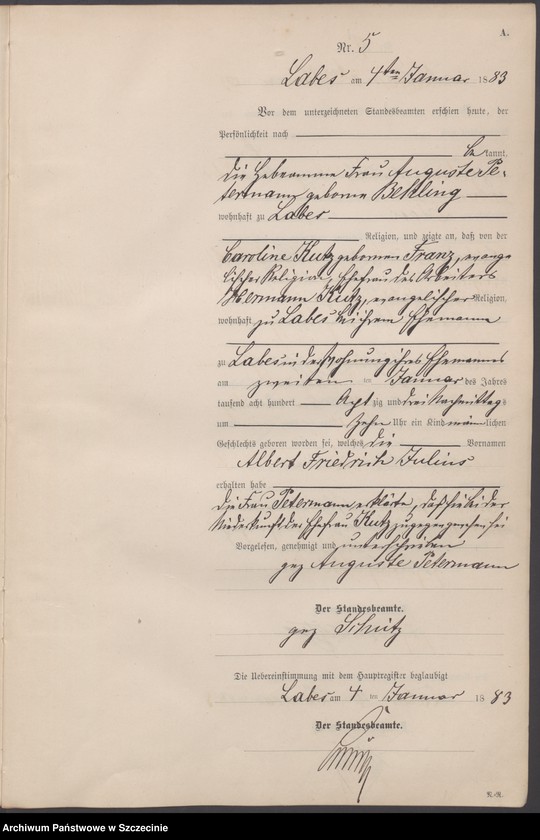 A.
Nr. 5
Labes am 4ten Januar 1883
Vor dem unterzeichneten Standesbeamten erschien heute, der
Persönlichkeit nach
bekannt,
die Hebeamme Frau Auguste Pe-
termann geborne Behling
wohnhaft zu Labes
Religion, und zeigte an, daß von der
Caroline Kutz gebornen Franz, evange
lischer Religion, Ehefrau des Arbeiters
Hermann Kutz, evangelischer Religion,
wohnhaft zu Labes bei ihrem Ehemanne
zu Labes in der Wohnung ihres Ehemannes
am zweiten ten Januar des Jahres
tausend acht hundert Achtzig und drei Nachmittags
um Zehn Uhr ein Kind männlichen
Geschlechts geboren worden sei, welches die Vornamen
Albert Friedrich Julius
erhalten habe
die Frau Petermann erklärte, daß sie bei der
Niederkunft der Ehefrau Kutz zugegen gewesen sei
Vorgelesen, genehmigt und unterschrieben
gez Auguste Petermann
Der Standesbeamte.
gez Schütz
Die Uebereinstimmung mit dem Hauptregister beglaubigt
Labes am 4 ten Januar 1883
Der Standesbeamte.
A.-R.
Archiwum Państwowe w Szczecinie